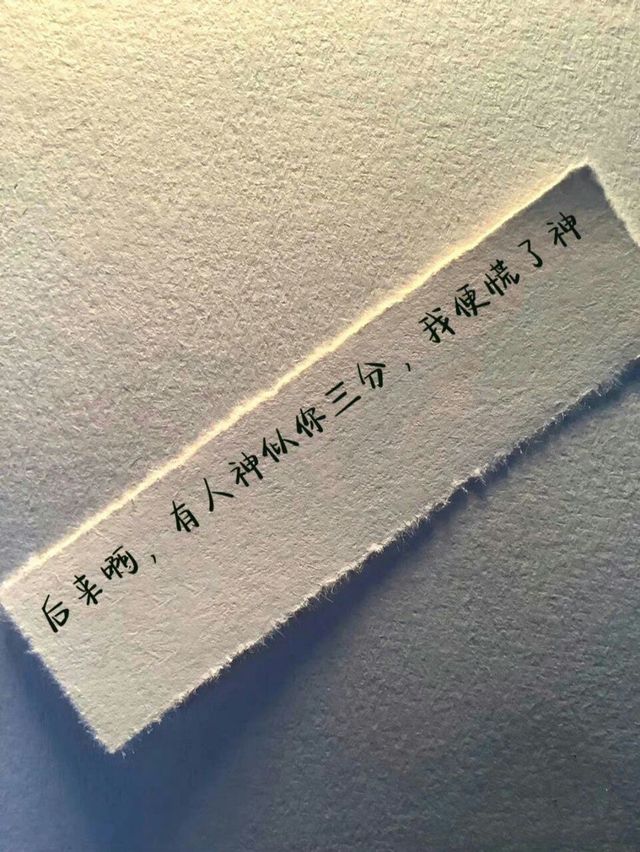 后来啊，有人神似你三分，我便慌了神